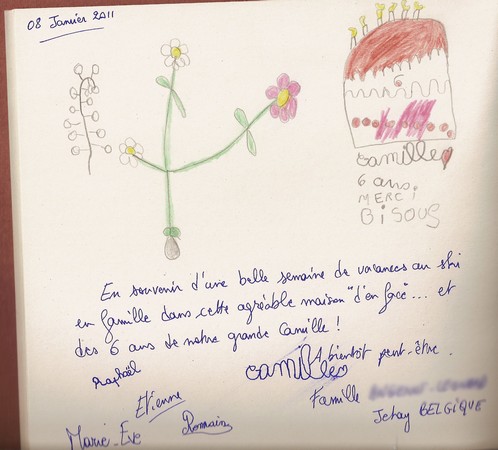 08 Janvier 2011
6
camille
6 ans.
MERCI
BISOUS
En souvenir d'une belle semaine de vacances au ski
en famille dans cette agréable maison "d'en face"... et
des 6 ans de notre grande Camille !
A bientôt peut-être.
Raphaël
camille
Etienne
Famille
Romain
Jehay BELGIQUE
Marie-Eve